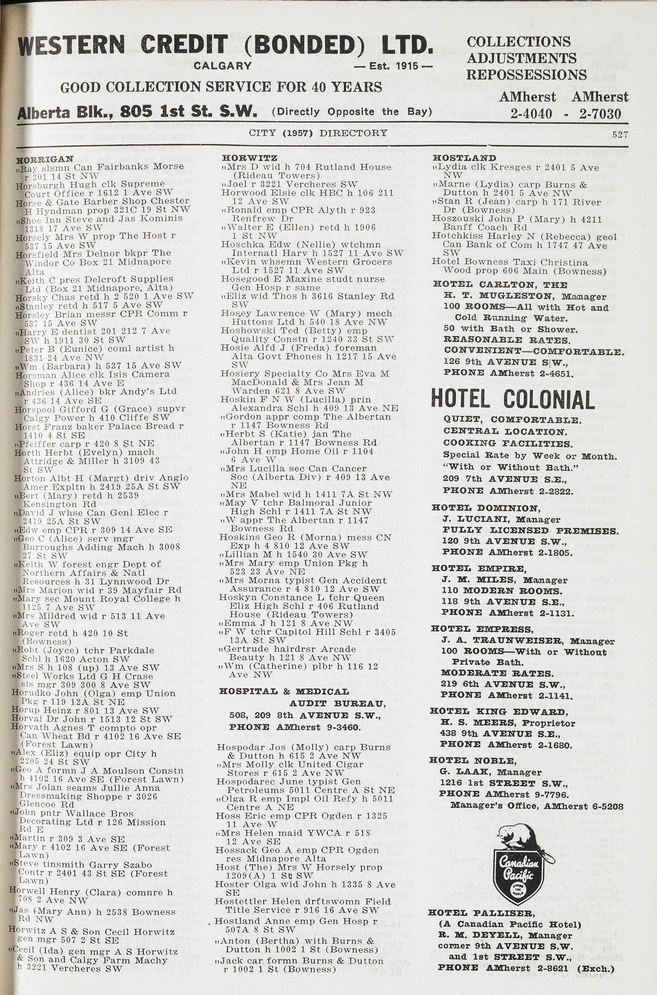 WESTERN CREDIT (BONDED) LTD.
CALGARY — Est. 1915 —
GOOD COLLECTION SERVICE FOR 40 YEARS
Alberta Blk., 805 1st St. S.W. (Directly Opposite the Bay)
COLLECTIONS
ADJUSTMENTS
REPOSSESSIONS
AMherst AMherst
2-4040 - 2-7030
CITY (1957) DIRECTORY 527
HORRIGAN
„Ray slsmn Can Fairbanks Morse
r 201 14 St NW
Horsburgh Hugh clk Supreme
Court Office r 1612 1 Ave SW
Horse & Gate Barber Shop Chester
H Hyndman prop 321C 19 St NW
„Shoe Inn Steve and Jas Kominis
1318 17 Ave SW
Horsely Mrs W prop The Host r
537 15 Ave SW
Horsfield Mrs Delnor bkpr The
Windor Co Box 21 Midnapore
Alta
„Keith C pres Delcroft Supplies
Ltd (Box 21 Midnapore, Alta)
Horsky Chas retd h 2 520 1 Ave SW
„Stanley retd h 517 5 Ave SW
Horsley Brian messr CPR Comm r
537 15 Ave SW
„Harry E dentist 201 212 7 Ave
SW h 1911 30 St SW
„Peter B (Eunice) coml artist h
1831 24 Ave NW
„Wm (Barbara) h 537 15 Ave SW
Horsman Alice clk Isis Camera
Shop r 436 14 Ave E
„Andries (Alice) bkr Andy's Ltd
r 436 14 Ave SE
Horspool Gifford G (Grace) supvr
Calgy Power h 410 Cliffe SW
Horst Franz baker Palace Bread r
1410 4 St SE
„Pfeiffer carp r 420 8 St NE
Horth Herbt (Evelyn) mach
Attridge & Miller h 3109 43
St SW
Horton Albt H (Margt) driv Anglo
Amer Expltn h 2419 25A St SW
„Bert (Mary) retd h 2539
Kensington Rd
„David J whse Can Genl Elec r
2419 25A St SW
„Edw emp CPR r 309 14 Ave SE
„Geo C (Alice) serv mgr
Burroughs Adding Mach h 3008
27 St SW
„Keith W forest engr Dept of
Northern Affairs & Natl
Resources h 31 Lynnwood Dr
„Mrs Marion wid r 39 Mayfair Rd
„Mary sec Mount Royal College h
1125 7 Ave SW
„Mrs Mildred wid r 513 11 Ave
Ave SW
„Roger retd h 420 10 St
(Bowness)
„Robt (Joyce) tchr Parkdale
Schl h 1620 Acton SW
„Mrs S h 108 (up) 13 Ave SW
„Steel Works Ltd G H Crase
sls mgr 309 300 8 Ave SW
Horudko John (Olga) emp Union
Pkg r 119 12A St NE
Horup Heinz r 801 13 Ave SW
Horvai Dr John r 1513 12 St SW
Horvath Agnes T compto opr
Can Wheat Bd r 4102 16 Ave SE
(Forest Lawn)
„Alex (Eliz) equip opr City h
2205 24 St SW
„Geo A formn J A Moulson Constn
h 4102 16 Ave SE (Forest Lawn)
„Mrs Jolan seams Jullie Anna
Dressmaking Shoppe r 3026
Glencoe Rd
„John pntr Wallace Bros
Decorating Ltd r 126 Mission
Rd E
„Martin r 309 3 Ave SE
„Mary r 4102 16 Ave SE (Forest
Lawn)
„Steve tinsmith Garry Szabo
Contr r 2401 43 St SE (Forest
Lawn)
Horwell Henry (Clara) comnre h
708 2 Ave NW
„Jas (Mary Ann) h 2538 Bowness
Rd NW
Horwitz A S & Son Cecil Horwitz
gen mgr 507 2 St SE
„Cecil (Ida) gen mgr A S Horwitz
& Son and Calgy Farm Machy
h 3221 Vercheres SW
HORWITZ
„Mrs D wid h 704 Rutland House
(Rideau Towers)
„Joel r 3221 Vercheres SW
Horwood Elsie clk HBC h 106 211
12 Av SW
„Ronald emp CPR Alyth r 923
Renfrew Dr
„Walter E (Ellen) retd h 1906
1 St NW
Hoschka Edw (Nellie) wtchmn
Internatl Harv h 1527 11 Ave SW
„Kevin whsemn Western Grocers
Ltd r 1527 11 Ave SW
Hosegood E Maxine studt nurse
Gen Hosp r same
„Eliz wid Thos h 3616 Stanley Rd
SW
Hosey Lawrence W (Mary) mech
Huttons Ltd h 540 18 Ave NW
Hoshowski Ted (Betty) emp
Quality Constn r 1240 33 St SW
Hosie Alfd J (Freda) foreman
Alta Govt Phones h 1217 15 Ave
SW
Hosiery Specialty Co Mrs Eva M
MacDonald & Mrs Jean M
Warden 621 8 Ave SW
Hoskin F N W (Lucilla) prin
Alexandra Schl h 409 13 Ave NE
„Gordon appr comp The Albertan
r 1147 Bowness Rd
„Herbt S (Katie) jan The
Albertan r 1147 Bowness Rd
„John H emp Home Oil r 1104
6 Ave W
„Mrs Lucilla sec Can Cancer
Soc (Alberta Div) r 409 13 Ave
NE
„Mrs Mabel wid h 1411 7A St NW
„May V tchr Balmoral Junior
High Schl r 1411 7A St NW
„W appr The Albertan r 1147
Bowness Rd
Hoskins Geo R (Morna) mess CN
Exp h 4 810 12 Ave SW
„Lillian M h 1540 30 Ave SW
„Mrs Mary emp Union Pkg h
523 23 Ave NE
„Mrs Morna typist Gen Accident
Assurance r 4 810 12 Ave SW
Hoskyn Constance L tchr Queen
Eliz High Schl r 406 Rutland
House (Rideau Towers)
„Emma J h 121 8 Ave NW
„F W tchr Capitol Hill Schl r 3405
13A St SW
„Gertrude hairdrsr Arcade
Beauty h 121 8 Ave NW
„Wm (Catherine) plbr h 116 12
Ave NW
HOSPITAL & MEDICAL
AUDIT BUREAU,
508, 209 8th AVENUE S.W.,
PHONE AMherst 9-3460.
Hospodar Jos (Molly) carp Burns
& Dutton h 615 2 Ave NW
„Mrs Molly clk United Cigar
Stores r 615 2 Ave NW
Hospodarec June typist Gen
Petroleums 5011 Centre A St NE
„Olga R emp Impl Oil Refy h 5011
Centre A NE
Hoss Eric emp CPR Ogden r 1325
11 Ave W
„Mrs Helen maid YWCA r 518
12 Ave SE
Hossack Geo A emp CPR Ogden
res Midnapore Alta
Host (The) Mrs W Horsely prop
1209(A) 1 St SW
Hoster Olga wid John h 1335 8 Ave
SE
Hostettler Helen drftswomn Field
Title Service r 916 16 Ave SW
Hostland Anne emp Gen Hosp r
507A 8 St SW
„Anton (Bertha) with Burns &
Dutton h 1002 1 St (Bowness)
„Jack car formn Burns & Dutton
r 1002 1 St (Bowness)
HOSTLAND
„Lydia clk Kresges r 2401 5 Ave
NW
„Marne (Lydia) carp Burns &
Dutton h 2401 5 Ave NW
„Stan R (Jean) carp h 171 River
Dr (Bowness)
Hoszouski John P (Mary) h 4211
Banff Coach Rd
Hotchkiss Harley N (Rebecca) geol
Can Bank of Com h 1747 47 Ave
SW
Hotel Bowness Taxi Christina
Wood prop 606 Main (Bowness)
HOTEL CARLTON, THE
H. T. MUGLESTON, Manager
100 ROOMS—All with Hot and
Cold Running Water.
50 with Bath or Shower.
REASONABLE RATES.
CONVENIENT—COMFORTABLE.
126 9th AVENUE S|W.,
PHONE AMherst 2-4651.
HOTEL COLONIAL
QUIET, COMFORTABLE.
CENTRAL LOCATION.
COOKING FACILITIES.
Special Rate by Week or Month.
"With or Without Bath."
209 7th AVENUE S.E.,
PHONE AMherst 2-2822.
HOTEL DOMINION,
J. LUCIANI, Manager
FULLY LICENSED PREMISES.
120 9th AVENUE S.W.,
PHONE AMherst 2-1805.
HOTEL EMPIRE,
J. M. MILES, Manager
110 MODERN ROOMS.
118 9th AVENUE S.E.,
PHONE AMherst 2-1131.
HOTEL EMPRESS,
J. A. TRAUNWEISER, Manager
100 ROOMS—With or Without
Private Bath.
MODERATE RATES.
219 6th AVENUE S.W.,
PHONE AMherst 2-1141.
HOTEL KING EDWARD,
H. S. MEERS, Proprietor
438 9th AVENUE S.E.,
PHONE AMherst 2-1680.
HOTEL NOBLE,
G. LAAK, Manager
1216 1st STREET S.W.,
PHONE AMherst 9-7796.
Manager's Office, AMherst 6-5208
Canadian
Pacific
HOTEL PALLISER,
(A Canadian Pacific Hotel)
R. M. DEYELL, Manager
corner 9th AVENUE S.W.
and 1st STREET S.W.,
PHONE AMherst 2-8621 (Exch.)